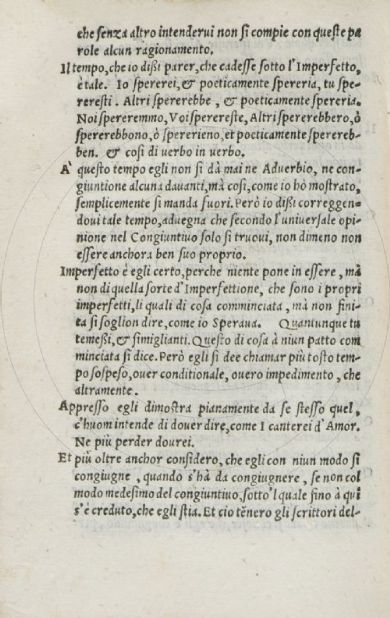 che senza altro intenderui non si compie con queste pa
role alcun ragionamento.
Il tempo, che io dißi parer, che cadesse sotto l'Imperfetto,
è tale. Io spererei, & poeticamente spereria, tu spe-
reresti. Altri spererebbe, & poeticamente spereria.
Noi spereremmo, Voi sperereste, Altri spererebbero, ò
spererebbono, ò spererieno, et poeticamente sperereb-
ben. & cosi di verbo in verbo.
A' questo tempo egli non si dà mai ne Aduerbio, ne con-
giuntione alcuna dauanti, mà cosi, come io hò mostrato,
semplicemente si manda fuori. Però io dißi correggen-
doui tale tempo, aduegna che secondo l'uniuersale opi-
nione nel Congiuntiuo solo si truoui, non dimeno non
essere anchora ben suo proprio.
Imperfetto è egli certo, perche niente pone in essere, mà
non di quella sorte d'Imperfettione, che sono i propri
imperfetti, li quali di cosa comminciata, mà non fini-
ta si soglion dire, come io Speraua. Quantunque tu
temeßi, & simiglianti. Questo di cosa à niun patto com
minciata si dice. Però egli si dee chiamar più tosto tem-
po sospeso, ouer conditionale, ouero impedimento, che
altramente.
Appresso egli dimostra pianamente da se stesso quel,
c'huom intende di douer dire, come I canterei d'Amor.
Ne più perder dourei.
Et più oltre anchor considero, che egli con niun modo si
congiugne, quando s'hà da congiugnere, se non col
modo medesimo del congiuntiuo, sotto'l quale fino à qui
s'è creduto, che egli stia. Et cio tẽnero gli scrittori del-